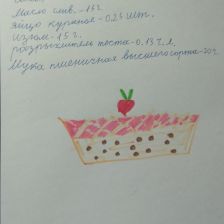 Масло слив. - 15 г.
Яйцо куриное - 0,25 шт.
Изюм - 15 г.
розрыхлитель теста - 0,13 ч. л.
Мука пшеничная высшего сорта - 30 г